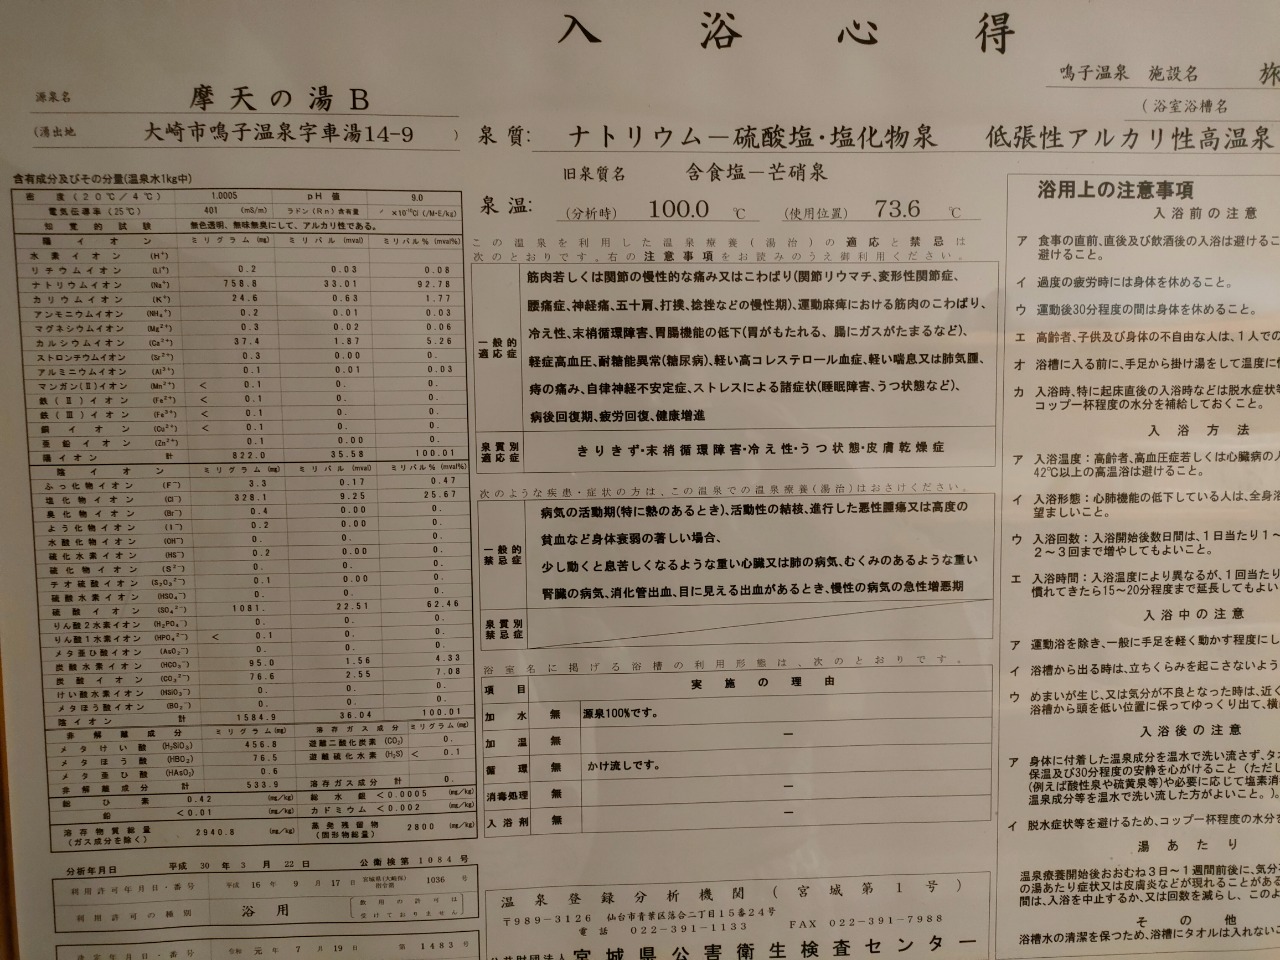 入浴心得
源泉名 摩天の湯B
(湧出地 大崎市鳴子温泉字車湯14-9 )
鳴子温泉 施設名 旅
(浴室浴槽名
泉質: ナトリウム－硫酸塩・塩化物泉 低張性アルカリ性高温泉
旧泉質名 含食塩－芒硝泉
泉温: (分析時) 100.0 ℃ (使用位置) 73.6 ℃
含有成分及びその分量(温泉水1kg中)
密度(20℃/4℃) 1.0005 pH値 9.0
電気伝導率(25℃) 401 (mS/m) ラドン(Rn)含有量
知覚的試験 無色透明、無味無臭にして、アルカリ性である。
陽イオン ミリグラム(mg) ミリバル(mval) ミリバル%(mval%)
水素イオン (H⁺)
リチウムイオン (Li⁺) 0.2 0.03 0.08
ナトリウムイオン (Na⁺) 758.8 33.01 92.78
カリウムイオン (K⁺) 24.6 0.63 1.77
アンモニウムイオン (NH₄⁺) 0.2 0.01 0.03
マグネシウムイオン (Mg²⁺) 0.3 0.02 0.06
カルシウムイオン (Ca²⁺) 37.4 1.87 5.26
ストロンチウムイオン (Sr²⁺) 0.3 0.00 0.
アルミニウムイオン (Al³⁺) 0.1 0.01 0.03
マンガン(Ⅱ)イオン (Mn²⁺) < 0.1 0. 0.
鉄(Ⅱ)イオン (Fe²⁺) < 0.1 0. 0.
鉄(Ⅲ)イオン (Fe³⁺) < 0.1 0. 0.
銅イオン (Cu²⁺) < 0.1 0. 0.
亜鉛イオン (Zn²⁺) 0.1 0.00 0.
陽イオン 計 822.0 35.58 100.01
陰イオン ミリグラム(mg) ミリバル(mval) ミリバル%(mval%)
ふっ化物イオン (F⁻) 3.3 0.17 0.47
塩化物イオン (Cl⁻) 328.1 9.25 25.67
臭化物イオン (Br⁻) 0.4 0.00 0.
よう化物イオン (I⁻) 0.2 0.00 0.
水酸化物イオン (OH⁻) 0. 0. 0.
硫化水素イオン (HS⁻) 0.2 0.00 0.
硫化物イオン (S²⁻) 0. 0. 0.
チオ硫酸イオン (S₂O₃²⁻) 0.1 0.00 0.
硫酸水素イオン (HSO₄⁻) 0. 0. 0.
硫酸イオン (SO₄²⁻) 1081. 22.51 62.46
りん酸2水素イオン (H₂PO₄⁻) 0. 0. 0.
りん酸1水素イオン (HPO₄²⁻) < 0.1 0. 0.
メタ亜ひ酸イオン (AsO₂⁻) 0. 0. 0.
炭酸水素イオン (HCO₃⁻) 95.0 1.56 4.33
炭酸イオン (CO₃²⁻) 76.6 2.55 7.08
けい酸水素イオン (HSiO₃⁻) 0. 0. 0.
メタほう酸イオン (BO₂⁻) 0. 0. 0.
陰イオン 計 1584.9 36.04 100.01
非解離成分 ミリグラム(mg) 溶存ガス成分 ミリグラム(mg)
メタけい酸 (H₂SiO₃) 456.8 遊離二酸化炭素 (CO₂) 0.
メタほう酸 (HBO₂) 76.5 遊離硫化水素 (H₂S) < 0.1
メタ亜ひ酸 (HAsO₂) 0.6
非解離成分 計 533.9 溶存ガス成分 計 0.
総ひ素 0.42 (mg/kg) 総水銀 <0.0005 (mg/kg)
鉛 <0.01 (mg/kg) カドミウム <0.002 (mg/kg)
溶存物質総量(ガス成分を除く) 2940.8 (mg/kg) 蒸発残留物(固形物総量) 2800 (mg/kg)
分析年月日 平成 30 年 3 月 22 日 公衛検第 1084 号
利用許可年月日・番号 平成 16 年 9 月 17 日 宮城県(大崎保)指令第 1036 号
利用許可の種別 浴用 (飲用の許可は受けておりません)
決定年月日・番号 令和 元 年 7 月 19 日 第 1483 号
この温泉を利用した温泉療養(湯治)の適応と禁忌は
次のとおりです。右の注意事項をお読みのうえ御利用ください。
一般的適応症
筋肉若しくは関節の慢性的な痛み又はこわばり(関節リウマチ、変形性関節症、
腰痛症、神経痛、五十肩、打撲、捻挫などの慢性期)、運動麻痺における筋肉のこわばり、
冷え性、末梢循環障害、胃腸機能の低下(胃がもたれる、腸にガスがたまるなど)、
軽症高血圧、耐糖能異常(糖尿病)、軽い高コレステロール血症、軽い喘息又は肺気腫、
痔の痛み、自律神経不安定症、ストレスによる諸症状(睡眠障害、うつ状態など)、
病後回復期、疲労回復、健康増進
泉質別適応症 きりきず・末梢循環障害・冷え性・うつ状態・皮膚乾燥症
次のような疾患・症状の方は、この温泉での温泉療養(湯治)はおさけください。
一般的禁忌症
病気の活動期(特に熱のあるとき)、活動性の結核、進行した悪性腫瘍又は高度の
貧血など身体衰弱の著しい場合、
少し動くと息苦しくなるような重い心臓又は肺の病気、むくみのあるような重い
腎臓の病気、消化管出血、目に見える出血があるとき、慢性の病気の急性増悪期
泉質別禁忌症
浴室名に掲げる浴槽の利用形態は、次のとおりです。
項目 実施の理由
加水 無 源泉100%です。
加温 無 ―
循環 無 かけ流しです。
消毒処理 無 ―
入浴剤 無 ―
温泉登録分析機関(宮城第1号)
〒989-3126 仙台市青葉区落合二丁目15番24号
電話 022-391-1133 FAX 022-391-7988
公益財団法人 宮城県公害衛生検査センター
浴用上の注意事項
入浴前の注意
ア 食事の直前、直後及び飲酒後の入浴は避けるこ
避けること。
イ 過度の疲労時には身体を休めること。
ウ 運動後30分程度の間は身体を休めること。
エ 高齢者、子供及び身体の不自由な人は、1人での
オ 浴槽に入る前に、手足から掛け湯をして温度に
カ 入浴時、特に起床直後の入浴時などは脱水症状
コップ一杯程度の水分を補給しておくこと。
入浴方法
ア 入浴温度:高齢者、高血圧症若しくは心臓病の人
42℃以上の高温浴は避けること。
イ 入浴形態:心肺機能の低下している人は、全身浴
望ましいこと。
ウ 入浴回数:入浴開始後数日間は、1日当たり1～
2～3回まで増やしてもよいこと。
エ 入浴時間:入浴温度により異なるが、1回当たり
慣れてきたら15～20分程度まで延長してもよい
入浴中の注意
ア 運動浴を除き、一般に手足を軽く動かす程度にし
イ 浴槽から出る時は、立ちくらみを起こさないよう
ウ めまいが生じ、又は気分が不良となった時は、近く
浴槽から頭を低い位置に保ってゆっくり出て、横
入浴後の注意
ア 身体に付着した温泉成分を温水で洗い流さず、タ
保温及び30分程度の安静を心がけること(ただし
(例えば酸性泉や硫黄泉等)や必要に応じて塩素消
温泉成分等を温水で洗い流した方がよいこと。)。
イ 脱水症状等を避けるため、コップ一杯程度の水分を
湯あたり
温泉療養開始後おおむね3日～1週間前後に、気分
の湯あたり症状又は皮膚炎などが現れることがある
間は、入浴を中止するか、又は回数を減らし、このよ
その他
浴槽水の清潔を保つため、浴槽にタオルは入れない